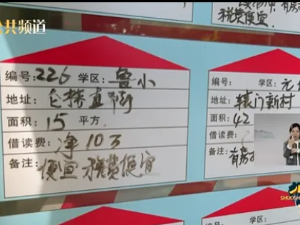 共频道
编号: 226 学区: 鲁小
地址: 仓桥直街
面积: 15 平方.
借读费: 净10万
备注: 便宜 税费便宜
编号: 学区: 元
地址: 辕门新村
面积: 42
借读费:
备注: 有房